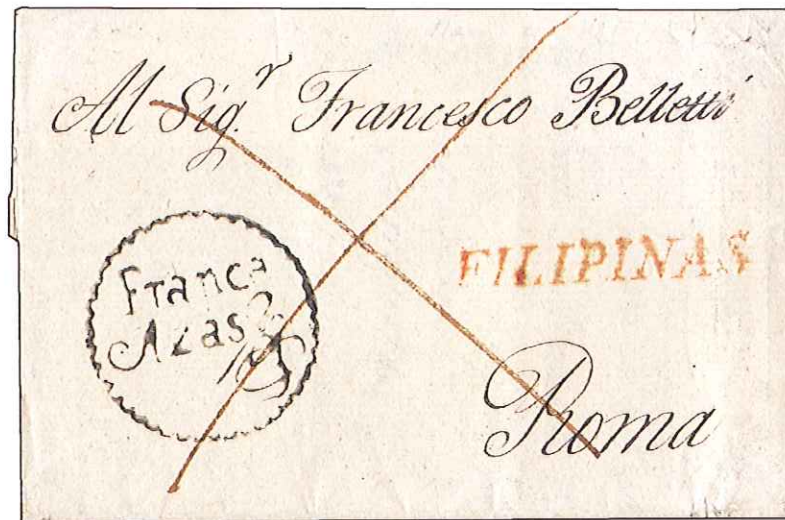 Al Sig.r Francesco Belletti
FILIPINAS
Franca
Roma